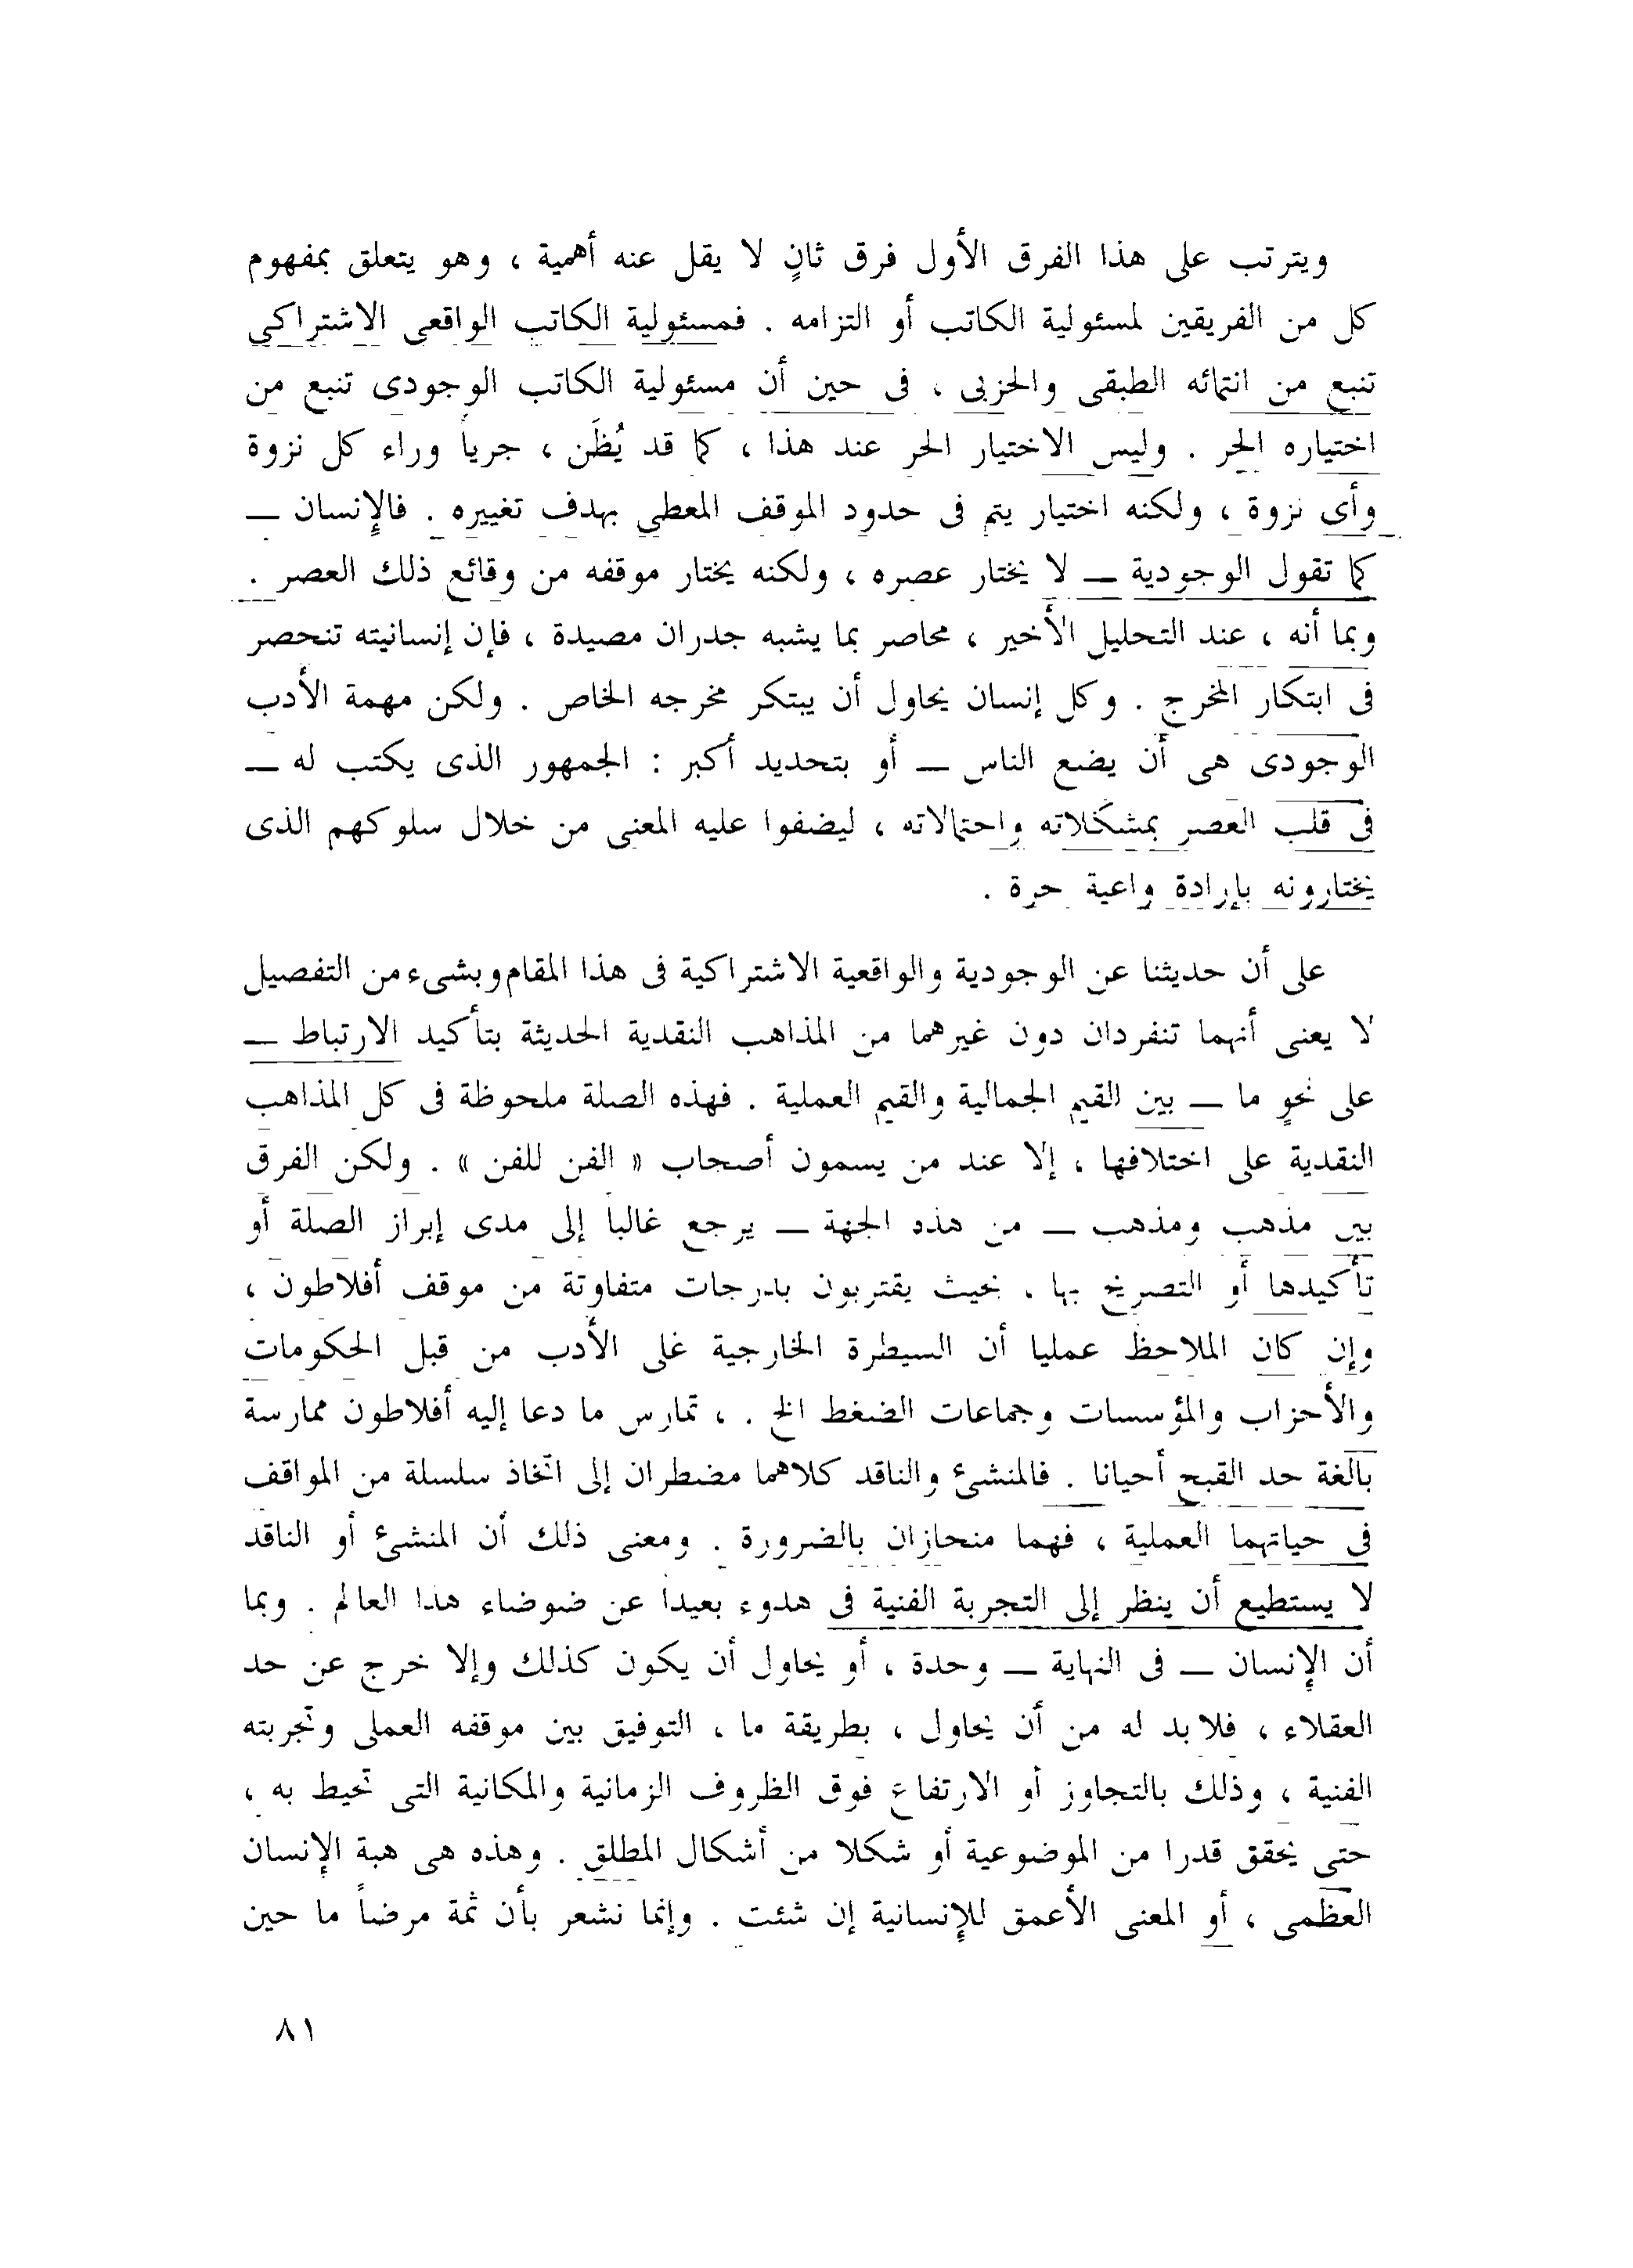 ويترتب على هذا الفرق الأول فرق ثانٍ لا يقل عنه أهمية ، وهو يتعلق بمفهوم
كل من الفريقين لمسئولية الكاتب أو التزامه . فمسئولية الكاتب الواقعى الاشتراكى
تنبع من انتمائه الطبقى والحزبى ، فى حين أن مسئولية الكاتب الوجودى تنبع من
اختياره الحر . وليس الاختيار الحر عند هذا ، كما قد يُظَن ، جرياً وراء كل نزوة
وأى نزوة ، ولكنه اختيار يتم فى حدود الموقف المعطى بهدف تغييره . فالإنسان —
كما تقول الوجودية — لا يختار عصره ، ولكنه يختار موقفه من وقائع ذلك العصر .
وبما أنه ، عند التحليل الأخير ، محاصر بما يشبه جدران مصيدة ، فإن إنسانيته تنحصر
فى ابتكار المخرج . وكل إنسان يحاول أن يبتكر مخرجه الخاص . ولكن مهمة الأدب
الوجودى هى أن يضع الناس — أو بتحديد أكبر : الجمهور الذى يكتب له —
فى قلب العصر بمشكلاته واحتمالاته ، ليضفوا عليه المعنى من خلال سلوكهم الذى
يختارونه بإرادة واعية حرة .
على أن حديثنا عن الوجودية والواقعية الاشتراكية فى هذا المقام وبشىء من التفصيل
لا يعنى أنهما تنفردان دون غيرهما من المذاهب النقدية الحديثة بتأكيد الارتباط —
على نحوٍ ما — بين القيم الجمالية والقيم العملية . فهذه الصلة ملحوظة فى كل المذاهب
النقدية على اختلافها ، إلا عند من يسمون أصحاب « الفن للفن » . ولكن الفرق
بين مذهب ومذهب — من هذه الجهة — يرجع غالباً إلى مدى إبراز الصلة أو
تأكيدها أو التصريح بها . بحيث يقتربون بدرجات متفاوتة من موقف أفلاطون ،
وإن كان الملاحظ عمليا أن السيطرة الخارجية على الأدب من قبل الحكومات
والأحزاب والمؤسسات وجماعات الضغط الخ . ، تمارس ما دعا إليه أفلاطون ممارسة
بالغة حد القبح أحيانا . فالمنشئ والناقد كلاهما مضطران إلى اتخاذ سلسلة من المواقف
فى حياتهما العملية ، فهما منحازان بالضرورة . ومعنى ذلك أن المنشئ أو الناقد
لا يستطيع أن ينظر إلى التجربة الفنية فى هدوء بعيداً عن ضوضاء هذا العالم . وبما
أن الإنسان — فى النهاية — وحدة ، أو يحاول أن يكون كذلك وإلا خرج عن حد
العقلاء ، فلا بد له من أن يحاول ، بطريقة ما ، التوفيق بين موقفه العملى وتجربته
الفنية ، وذلك بالتجاوز أو الارتفاع فوق الظروف الزمانية والمكانية التى تحيط به ،
حتى يحقق قدرا من الموضوعية أو شكلا من أشكال المطلق . وهذه هى هبة الإنسان
العظمى ، أو المعنى الأعمق للإنسانية إن شئت . وإنما نشعر بأن ثمة مرضاً ما حين
٨١